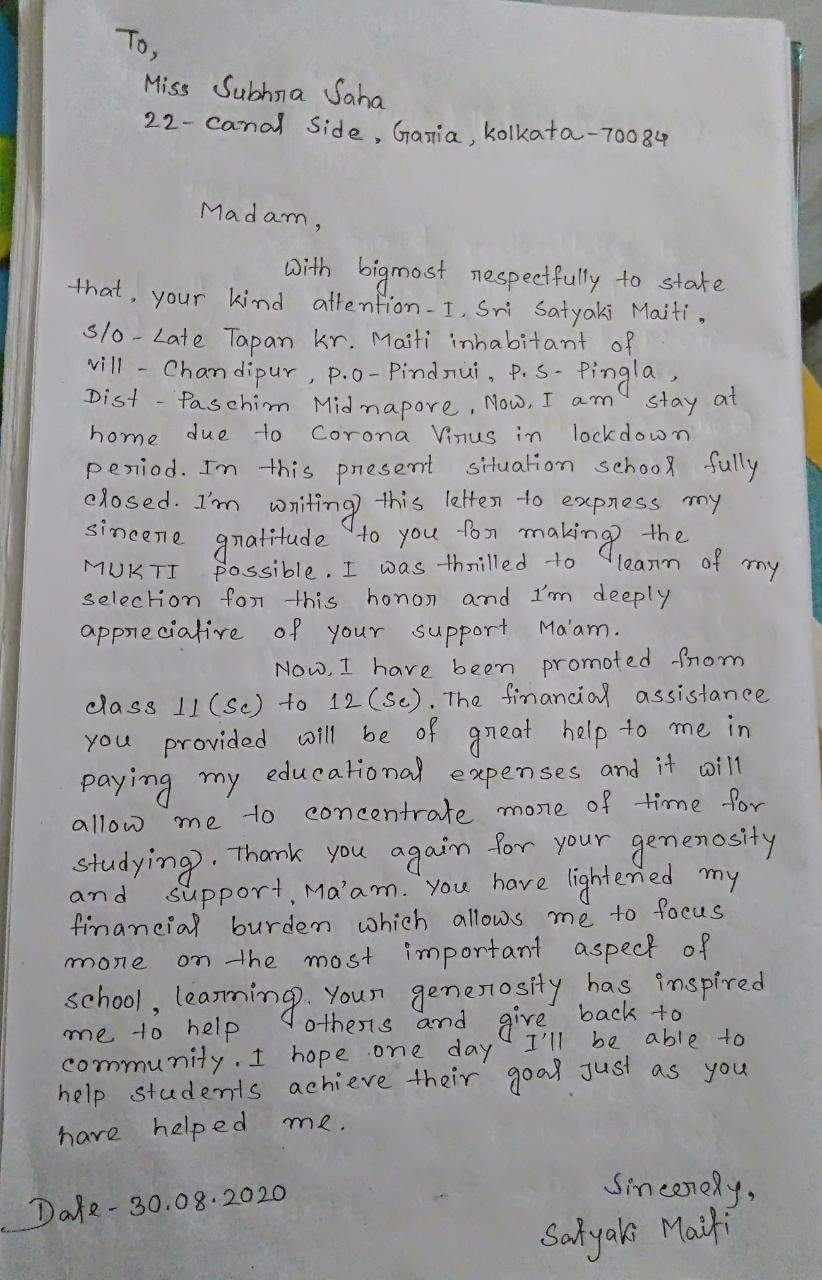 To,
Miss Subhra Saha
22- Canal Side, Garia, Kolkata-70084
Madam,
With bigmost respectfully to state
that, your kind attention - I, Sri Satyaki Maiti,
S/o - Late Tapan Kr. Maiti inhabitant of
vill - Chandipur, P.O - Pindrui, P.S - Pingla,
Dist - Paschim Midnapore, Now, I am stay at
home due to Corona Virus in lockdown
period. In this present situation school fully
closed. I'm writing this letter to express my
sincere gratitude to you for making the
MUKTI possible. I was thrilled to learn of my
selection for this honor and I'm deeply
appreciative of your support Ma'am.
Now, I have been promoted from
class 11 (Sc) to 12 (Sc). The financial assistance
you provided will be of great help to me in
paying my educational expenses and it will
allow me to concentrate more of time for
studying. Thank you again for your generosity
and support, Ma'am. You have lightened my
financial burden which allows me to focus
more on the most important aspect of
school, learning. Your generosity has inspired
me to help others and give back to
community. I hope one day I'll be able to
help students achieve their goal just as you
have helped me.
Date - 30.08.2020
Sincerely,
Satyaki Maiti